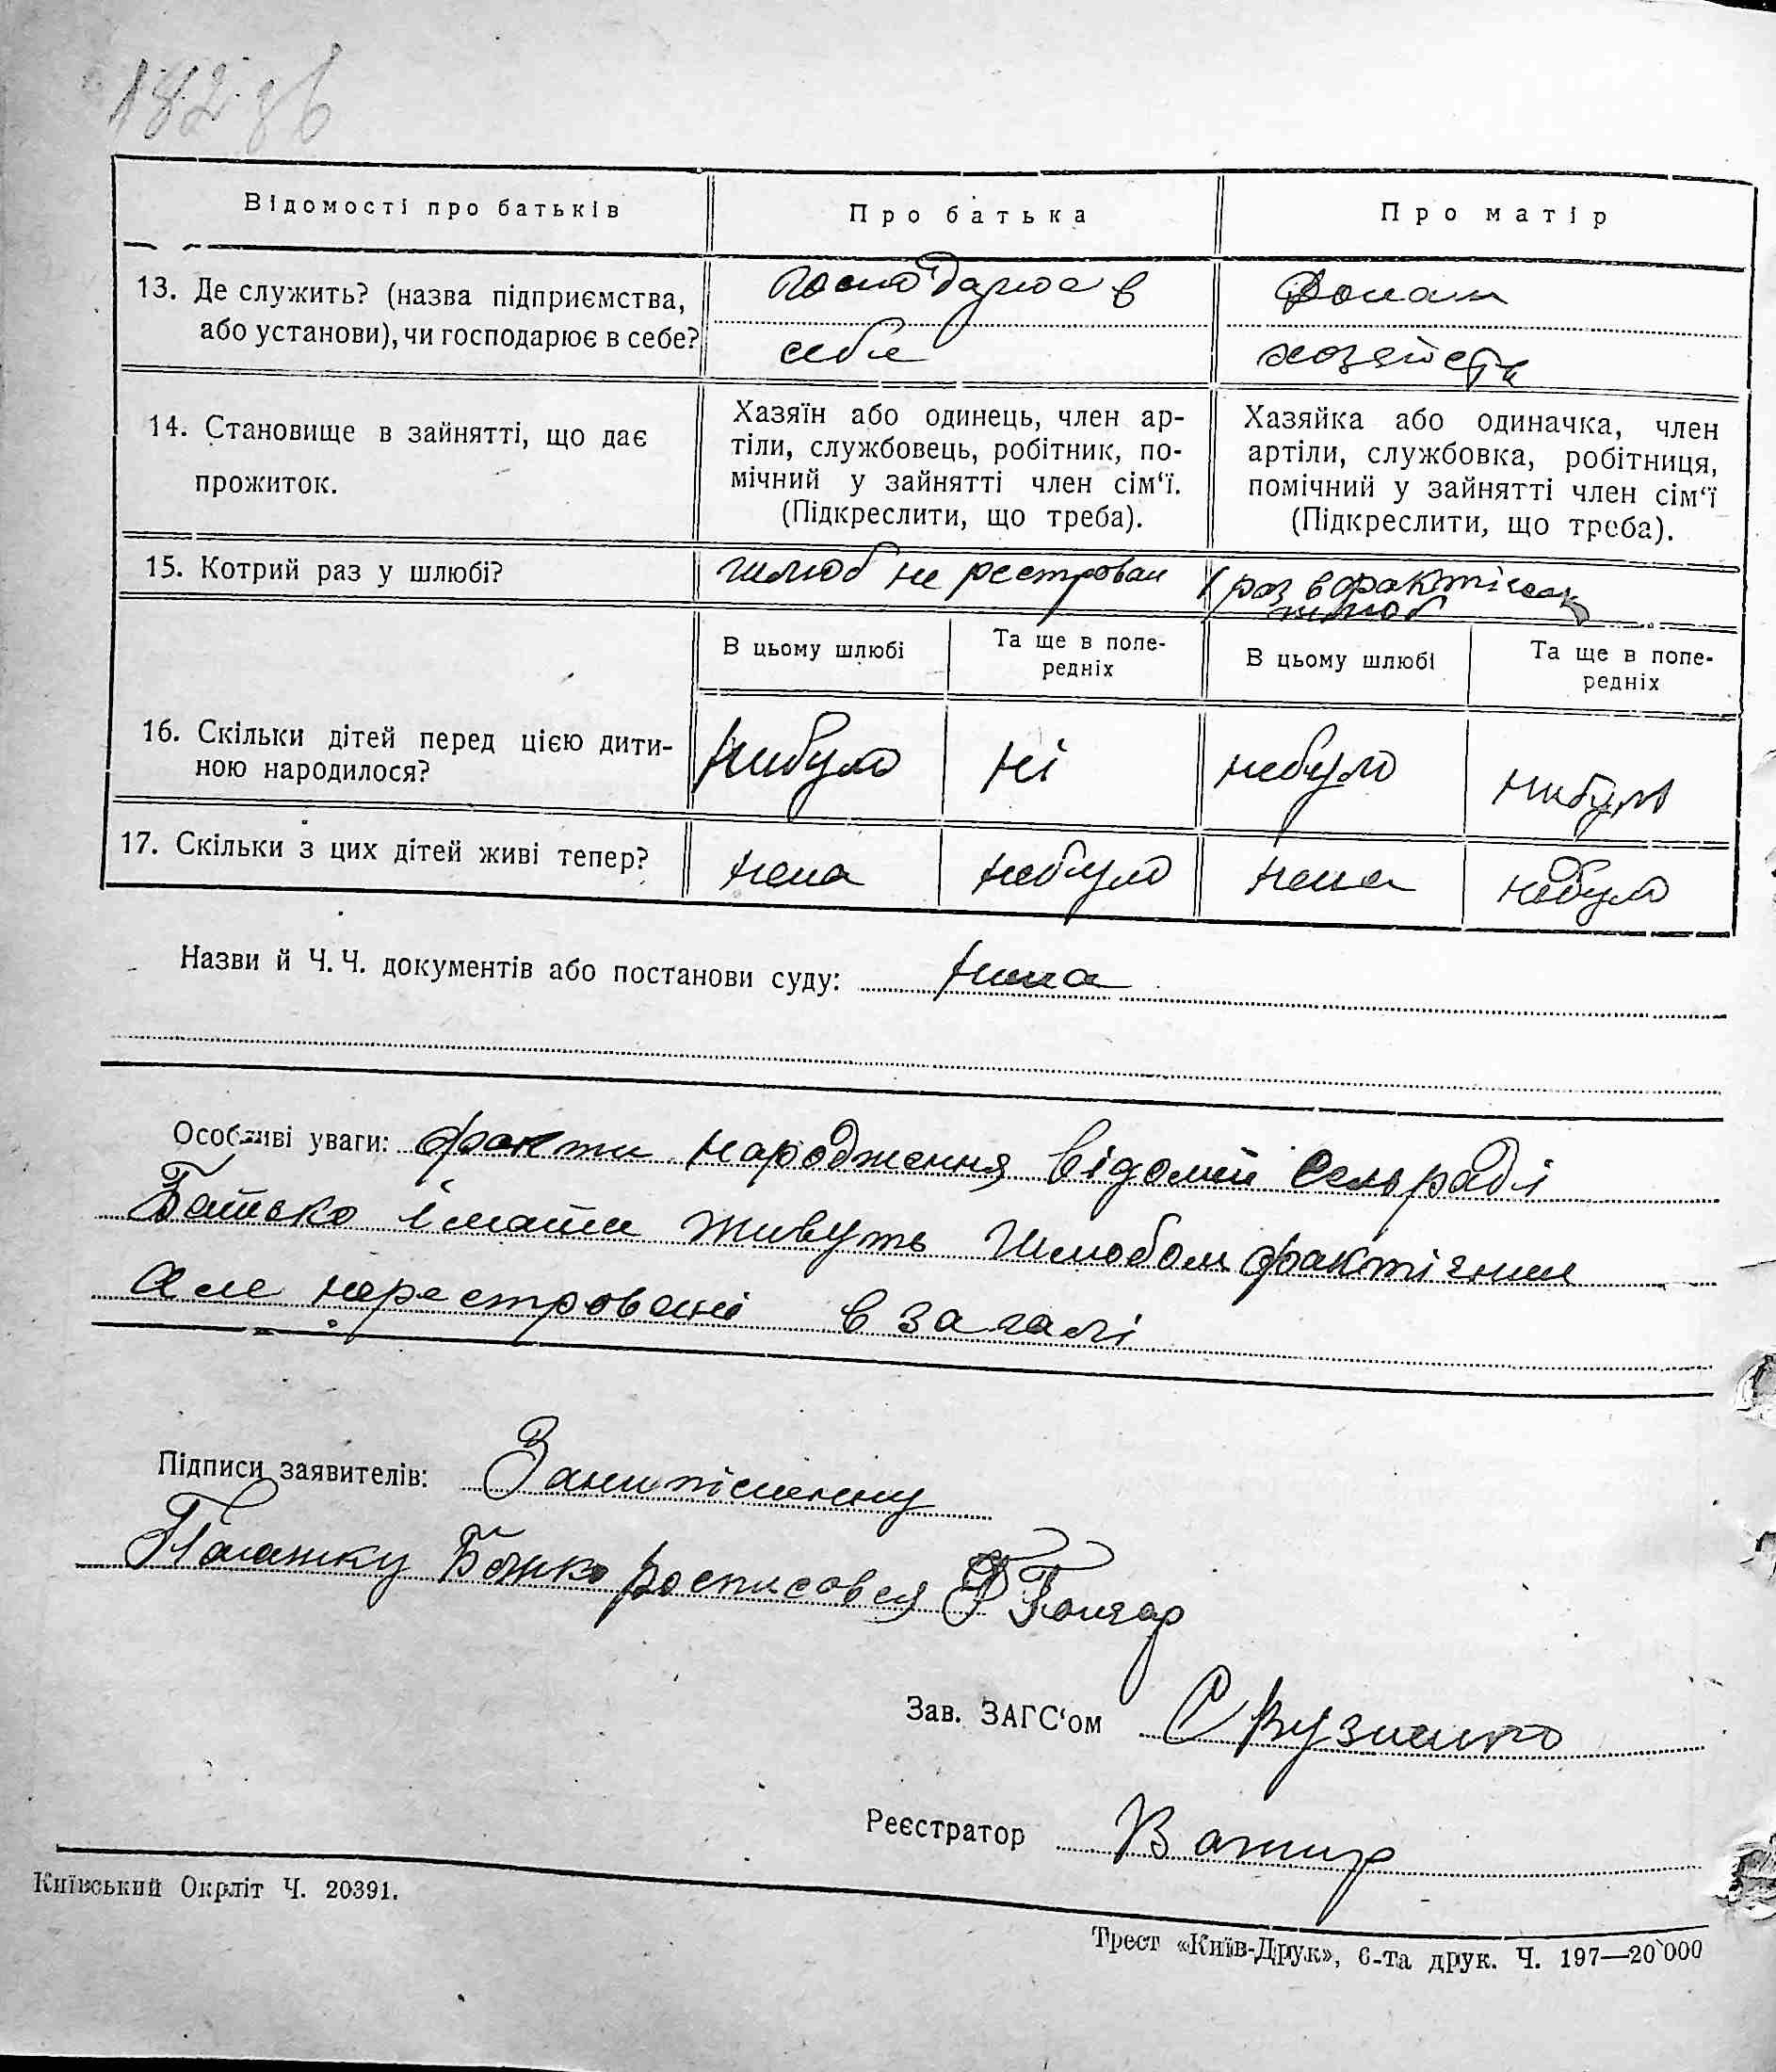 182 зв
Відомості про батьків
Про батька
Про матір
13. Де служить? (назва підприємства,
або установи), чи господарює в себе?
господарює в
себе
Домаш
хозяйств
14. Становище в зайнятті, що дає
прожиток.
Хазяїн або одинець, член ар-
тіли, службовець, робітник, по-
мічний у зайнятті член сім‘ї.
(Підкреслити, що треба).
Хазяйка або одиначка, член
артіли, службовка, робітниця,
помічний у зайнятті член сім‘ї
(Підкреслити, що треба).
15. Котрий раз у шлюбі?
шлюб не рестрован
1 раз в фактічном
шлюб
В цьому шлюбі
Та ще в попе-
редніх
В цьому шлюбі
Та ще в попе-
редніх
16. Скільки дітей перед цією дити-
ною народилося?
нибуло
ні
небуло
нибуло
17. Скільки з цих дітей живі тепер?
нема
небуло
нема
небуло
Назви й Ч. Ч. документів або постанови суду: нима
Особливі уваги: факти народження відомий Сельраді
Батько і мати живуть шлюбом фактічним
але нерестровані в загалі
Підписи заявителів: Занипісменну
Палажку Божко росписовся Гончар
Зав. ЗАГС‘ом
Реєстратор
Київський Окрліт Ч. 20391.
Трест «Київ-Друк», 6-та друк. Ч. 197—20`000